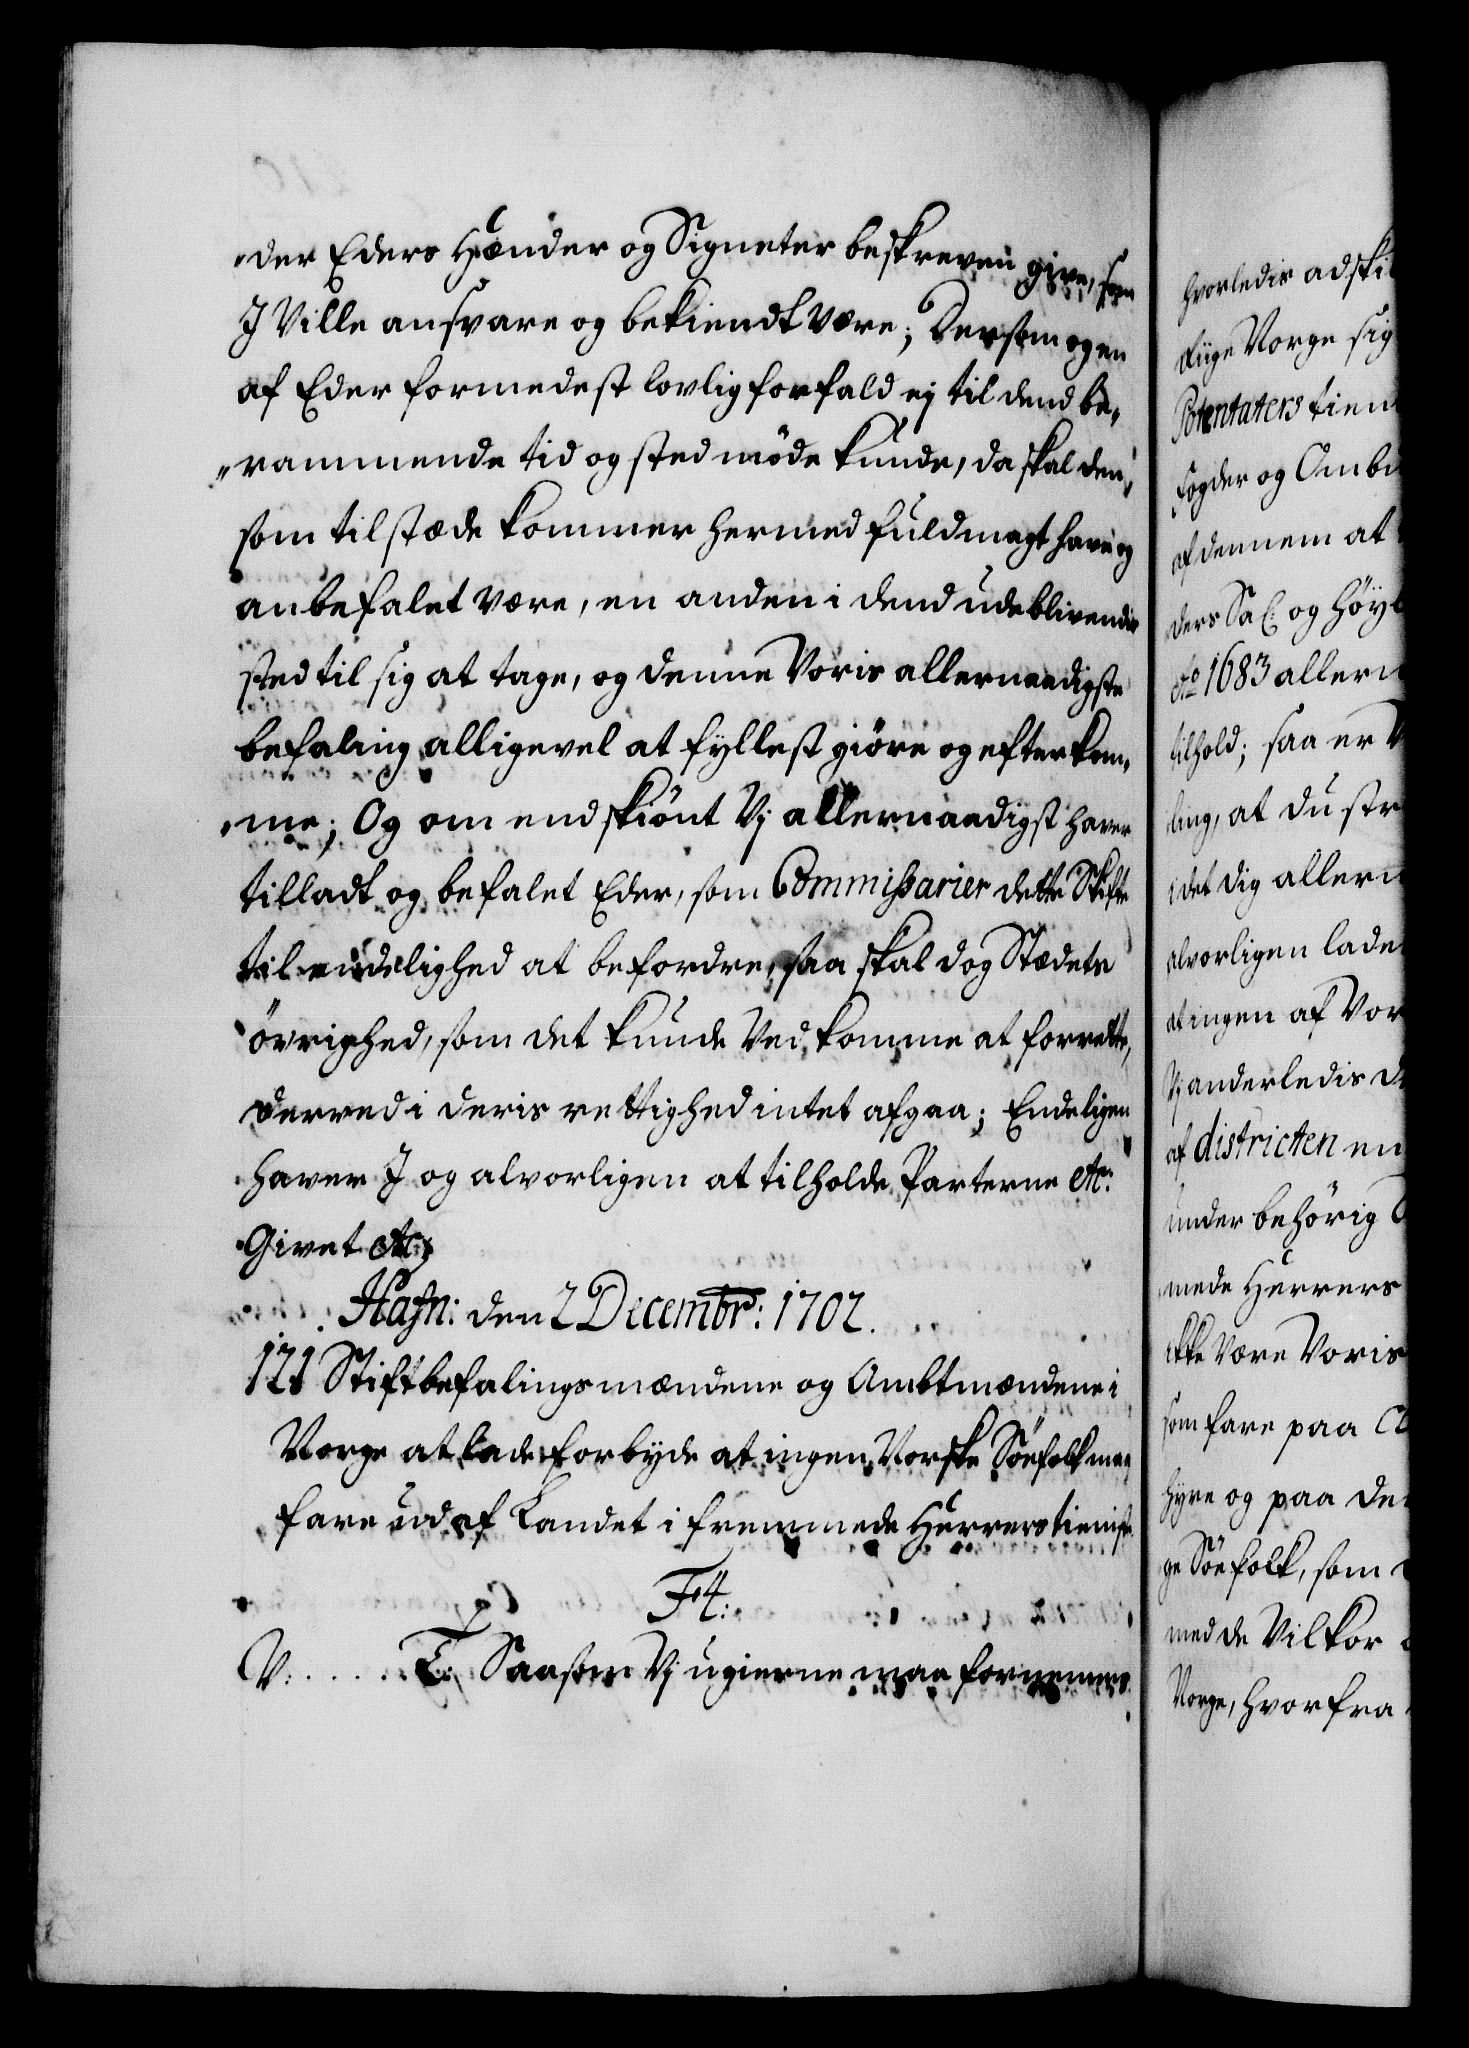 der Eders Hænder og Signeter beskreven give, som
J Ville ansvare og bekiendt være; Dersom og en
af Eder formedelst lovlig forfald ej til dend be„
„rammende tid og sted møde kunde, da skal den,
som tilstæde kommer hermed fuldmagt have og
anbefalet være, en anden i dend udeblivendis
sted til sig at tage, og denne Voris allernaadigste
befaling alligevel at fyllest giöre og efterkom„
„me; Og om endskiönt Vj allernaadigst haver
tilladt og befalet Eder, som Commissarier dette Skifte
til endelighed at befordre, saa skal dog Stædets
övrighed, som det kunde Ved komme at forrette,
derved i deris rettighed intet afgaa; Endeligen
haver J og alvorligen at tilholde Parterne etc:
Givet etc:
Hafn: den 2 Decembr: 1702.
121 Stiftbefalingsmændene og Ambtmændene i
Norge at lade forbyde at ingen Norske Söefolk maa
fare ud af Landet i fremmede Herrers tieniste.
F4:
V: . . . . . T: Saasom Vj ugierne maa fornemme
hvorledis adski
düge Norge sig
Potentaters tien
fogder og Amb
af dennem at
ders Sal: og höyl
Ao 1683 allern
tilhold; saa er V
ling, at du str
det dig allern
alvorligen lade
at ingen af Vor
Vj anderledis d
af districten en
under behörig
mede Herrers
ikke være Voris
som fare paa
hyre og paa de
ge Söefolk, som
med de Vilkor
Norge, hvorfra